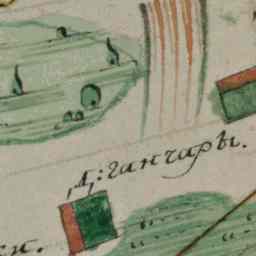 Д: ганчары.